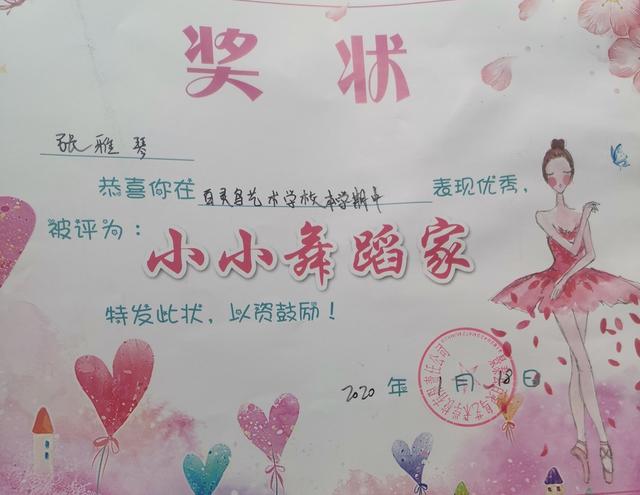 奖状
张雅琴
恭喜你在百灵鸟艺术学校本学期中表现优秀，
被评为：小小舞蹈家
特发此状，以资鼓励！
2020年1月18日